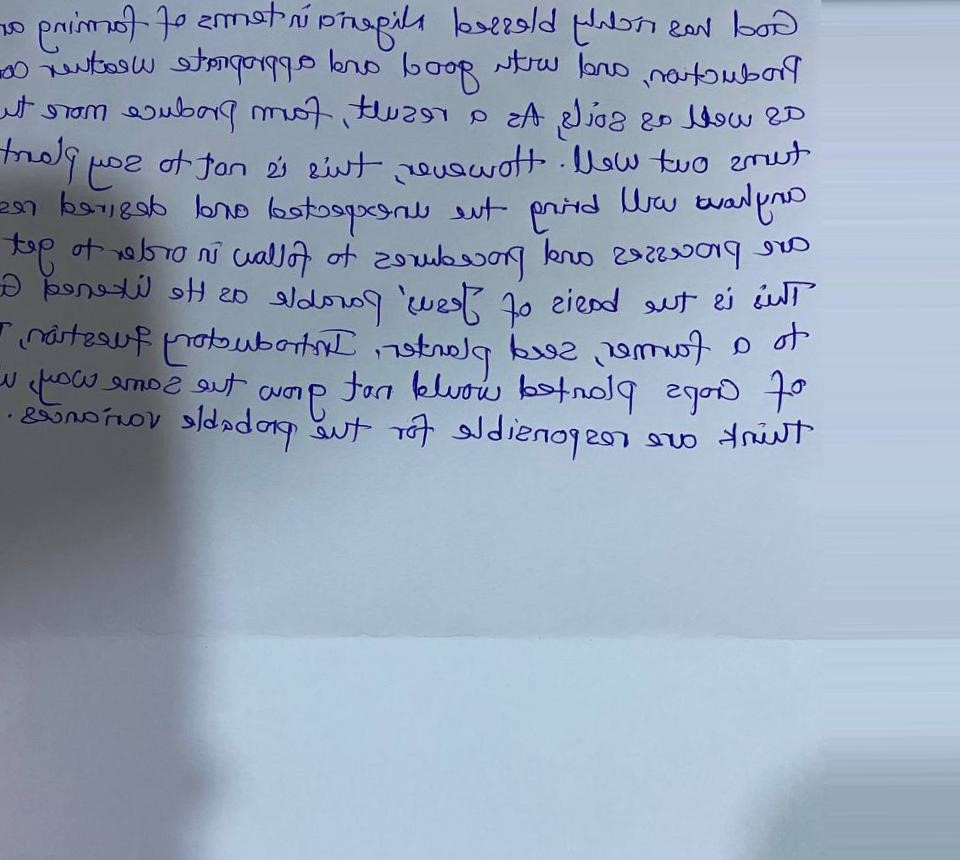 God has richly blessed Nigeria in terms of farming
Production, and with good and appropriate weather
as well as soils, As a result, farm produce more
turns out well. However, this is not to say plant
anyhow will bring the unexpected and desired
are processes and procedures to follow in order to get
This is the basis of Jesus' parable as He likened
to a farmer, seed planter, Introductory Question,
of crops planted would not grow the same way,
think are responsible for the probable variances.